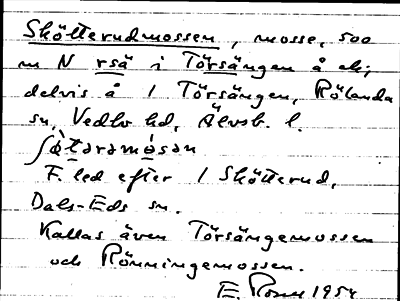 Skötterudmossen, mosse, 500
m N rsä i Törsängen å ek;
delvis å 1 Törsängen, Rölanda
sn, Vedbo hd, Älvsb. l.
ʃø̀tərəmósən
F. led efter 1 Skötterud,
Dals-Eds sn.
Kallas även Törsängemossen
och Rönningemossen.
E. 1954